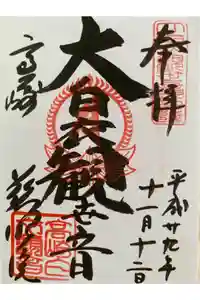 奉拝
平成廿九年
十一月十二日
大白衣観世音
高崎
慈眼院